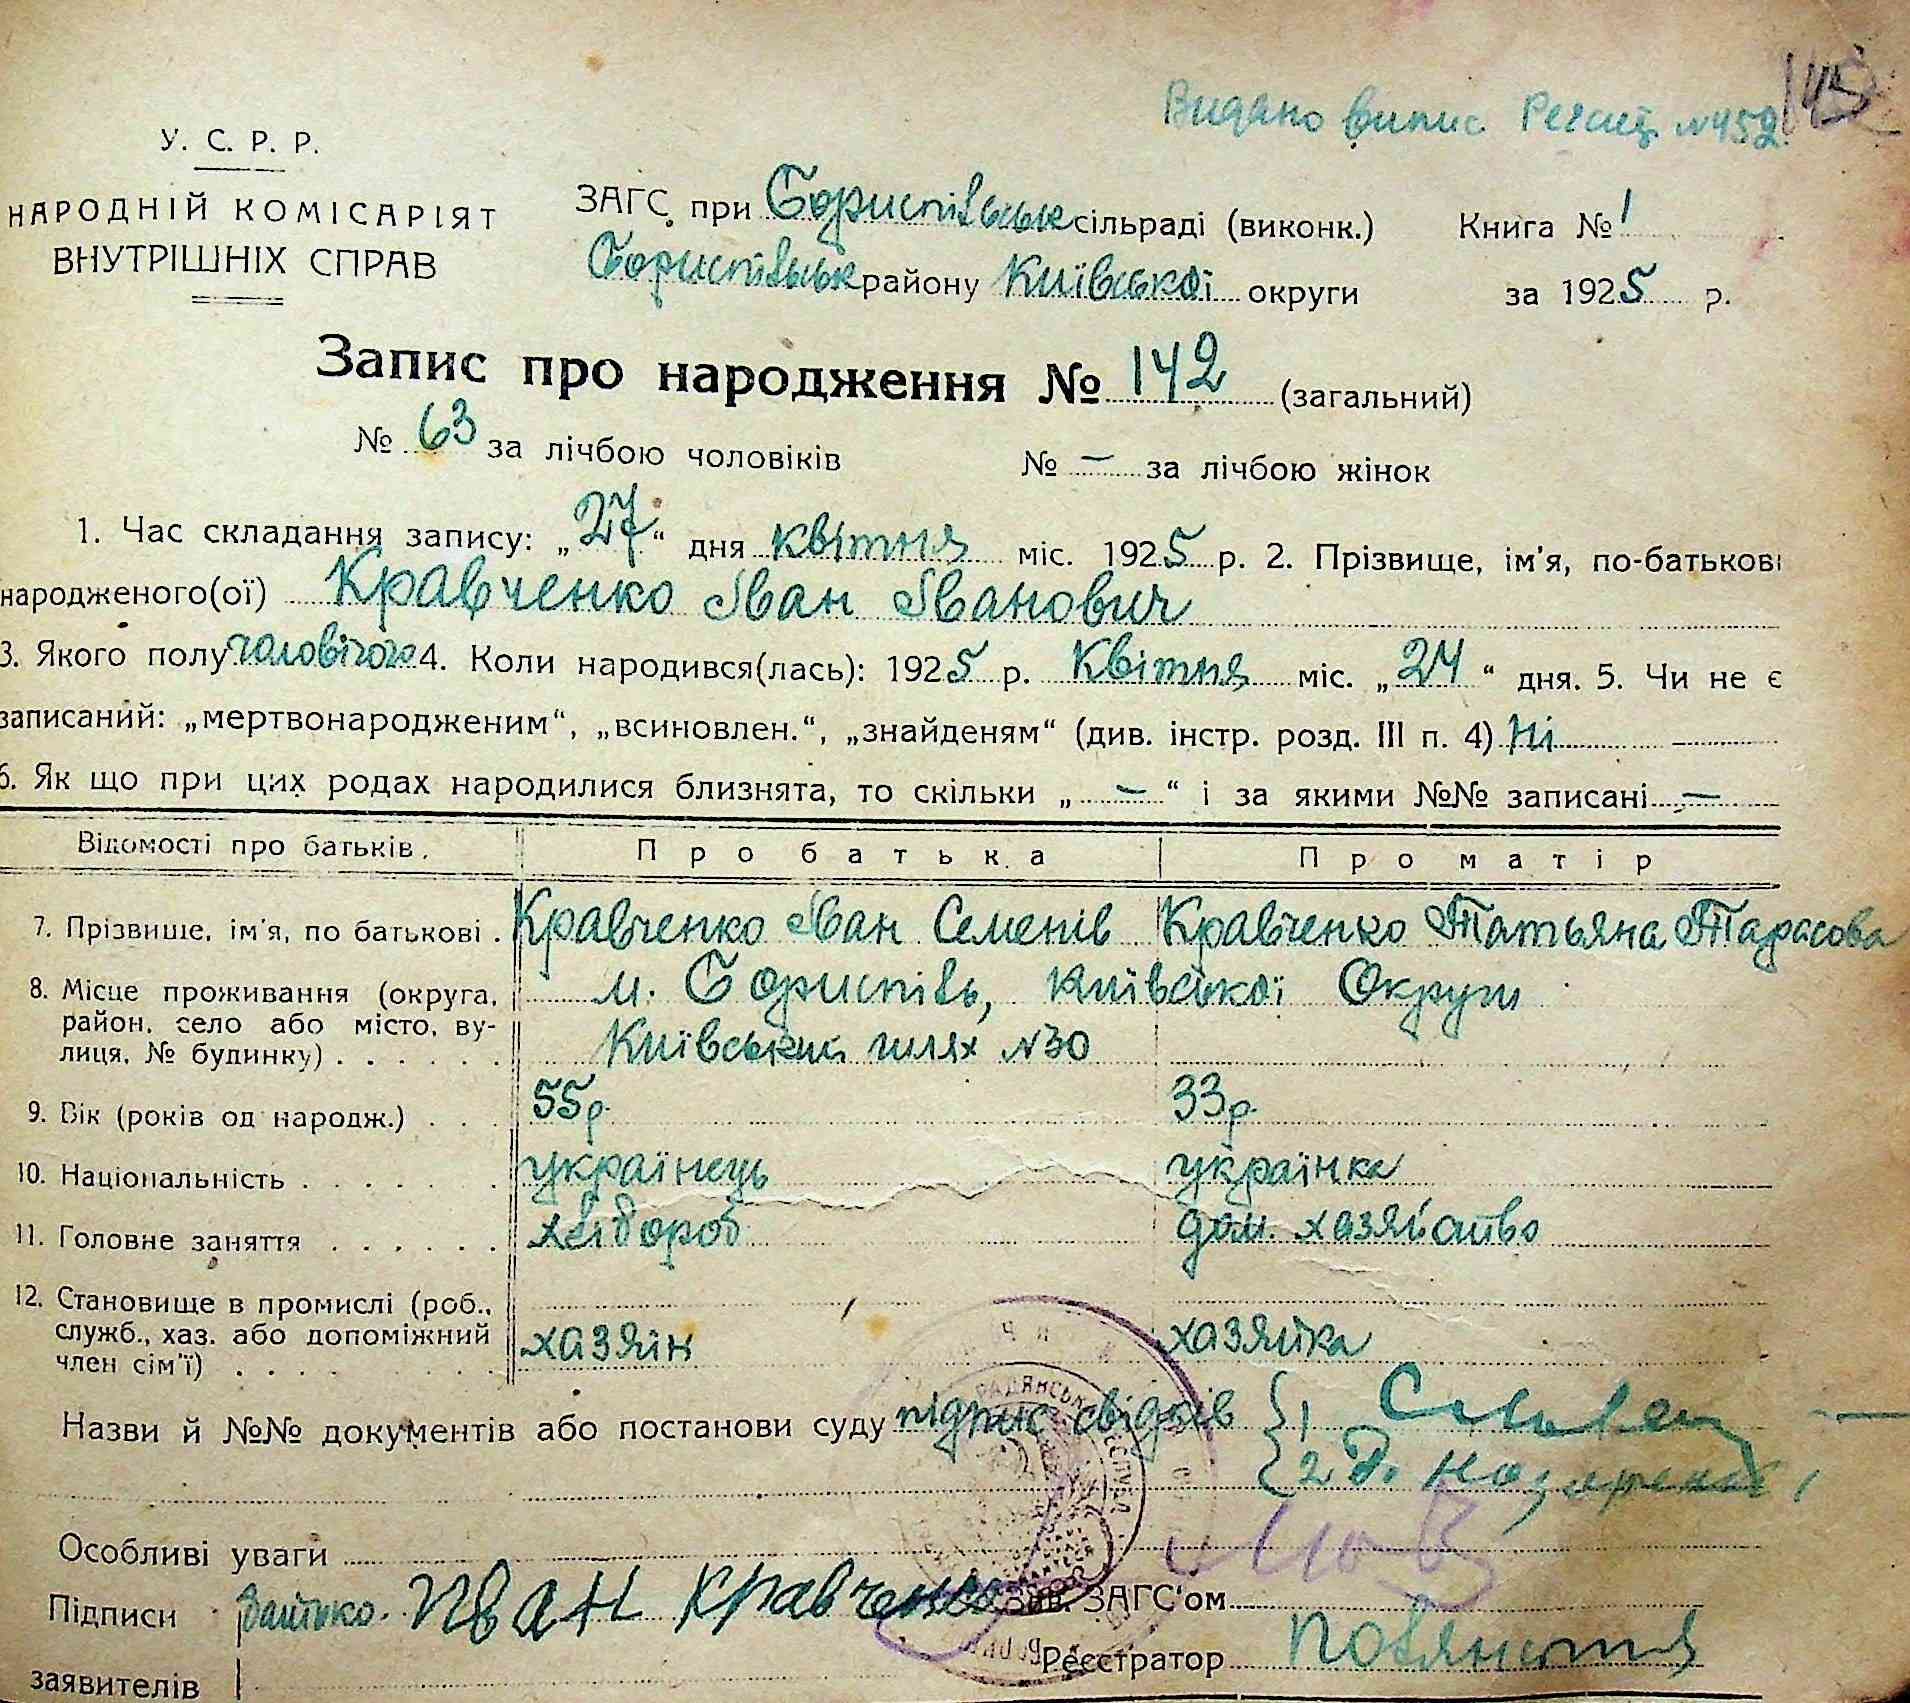 Видано випис. Реєстр №452.
145
У. С. Р. Р.
НАРОДНІЙ КОМІСАРІЯТ
ВНУТРІШНІХ СПРАВ
ЗАГС при Бориспільськ сільраді (виконк.) Книга № 1
Бориспільськ району Київської округи за 1925 р.
Запис про народження № 142 (загальний)
№ 63 за лічбою чоловіків № — за лічбою жінок
1. Час складання запису: „27“ дня квітня міс. 1925 р. 2. Прізвище, ім'я, по-батькові
народженого(ої) Кравченко Іван Іванович
3. Якого полу чоловічого 4. Коли народився(лась): 1925 р. Квітня міс. „24“ дня. 5. Чи не є
записаний: „мертвонародженим“, „всиновлен.“, „знайденям“ (див. інстр. розд. III п. 4) Ні
6. Як що при цих родах народилися близнята, то скільки „—“ і за якими №№ записані —
Відомості про батьків. Про батька Про матір
7. Прізвише, ім'я, по батькові. Кравченко Іван Семенів Кравченко Татьяна Тарасова
8. Місце проживання (округа, м. Бориспіль, Київської Округи
район, село або місто, ву-
лиця, № будинку) Київський шлях №30
9. Вік (років од народж.) 55р. 33р.
10. Національність українець українка
11. Головне заняття хлібороб дом. хазяйство
12. Становище в промислі (роб.,
служб., хаз. або допоміжний хазяїн хазяйка
член сім'ї)
Назви й №№ документів або постанови суду підпис свідків 1
2 Назаренко
Особливі уваги
Підписи батько. Іван Кравченко Зав. ЗАГС'ом
Реєстратор
заявителів